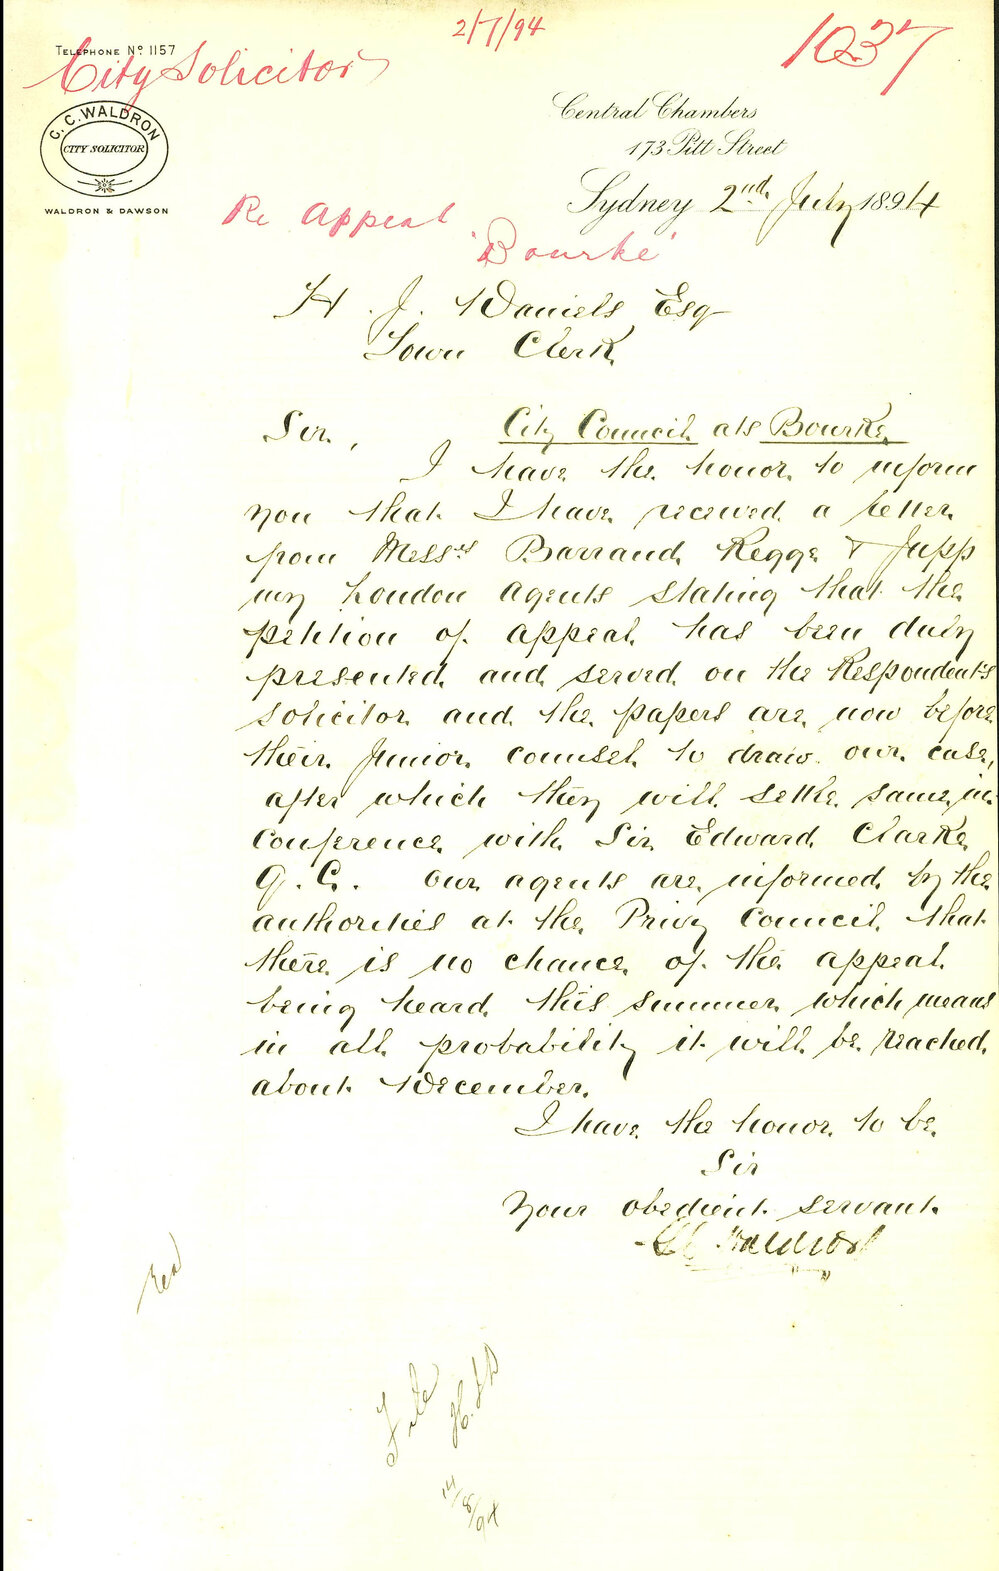 2/7/94
1037
TELEPHONE No 1157
City Solicitor
C. C. WALDRON
CITY SOLICITOR
WALDRON & DAWSON
Central Chambers
173 Pitt Street
Sydney 2nd July 1894
Re Appeal
'Bourke'
H. J. Daniels Esq
Town Clerk
Sir,
City Council ats Bourke
I have the honor to inform
you that I have received a letter
from Messrs Barraud Regge & Jupp
my London Agents stating that the
petition of appeal has been duly
presented and served on the Respondent's
solicitor and the papers are now before
their Junior counsel to draw our case,
after which they will settle same in
Conference with Sir Edward Clarke
Q.C. Our agents are informed by the
authorities at the Privy Council that
there is no chance of the appeal
being heard this summer which means
in all probability it will be reached
about December.
I have the honor to be
Sir
Your obedient servant
C C Waldron
File
H.J.D
14/8/94